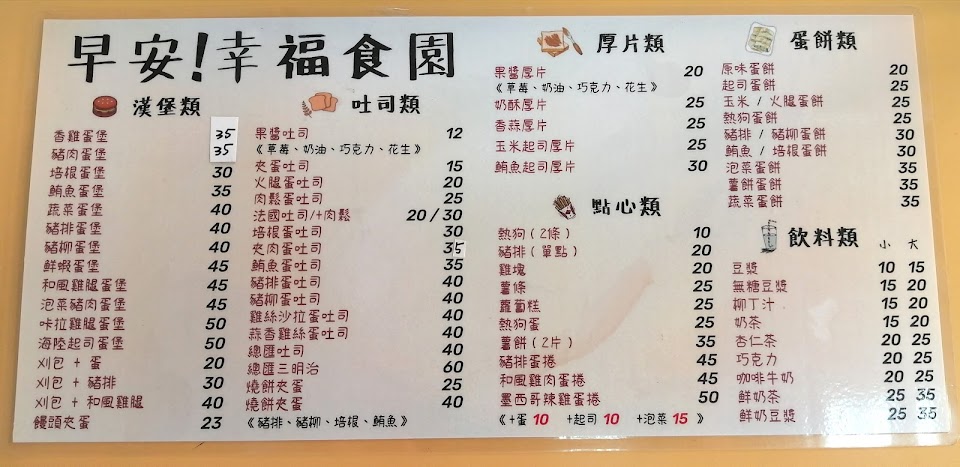 早安!幸福食園
漢堡類
香雞蛋堡 35
豬肉蛋堡 35
培根蛋堡 30
鮪魚蛋堡 35
蔬菜蛋堡 40
豬排蛋堡 40
豬柳蛋堡 40
鮮蝦蛋堡 45
和風雞腿蛋堡 45
泡菜豬肉蛋堡 45
咔拉雞腿蛋堡 50
海陸起司蛋堡 50
刈包 + 蛋 20
刈包 + 豬排 30
刈包 + 和風雞腿 40
饅頭夾蛋 23
吐司類
果醬吐司 12
《草莓、奶油、巧克力、花生》
夾蛋吐司 15
火腿蛋吐司 20
肉鬆蛋吐司 25
法國吐司/+肉鬆 20 / 30
培根蛋吐司 30
夾肉蛋吐司 35
鮪魚蛋吐司 35
豬排蛋吐司 40
豬柳蛋吐司 40
雞絲沙拉蛋吐司 40
蒜香雞絲蛋吐司 40
總匯吐司 40
總匯三明治 60
燒餅夾蛋 25
燒餅夾蛋 40
《豬排、豬柳、培根、鮪魚》
厚片類
果醬厚片 20
《草莓、奶油、巧克力、花生》
奶酥厚片 25
香蒜厚片 25
玉米起司厚片 25
鮪魚起司厚片 30
點心類
熱狗(2條) 10
豬排(單點) 20
雞塊 20
薯條 25
蘿蔔糕 25
熱狗蛋 25
薯餅(2片) 35
豬排蛋捲 45
和風雞肉蛋捲 45
墨西哥辣雞蛋捲 50
《+蛋 10 +起司 10 +泡菜 15 》
蛋餅類
原味蛋餅 20
起司蛋餅 25
玉米 / 火腿蛋餅 25
熱狗蛋餅 25
豬排 / 豬柳蛋餅 30
鮪魚 / 培根蛋餅 30
泡菜蛋餅 35
薯餅蛋餅 35
蔬菜蛋餅 35
飲料類 小 大
豆漿 10 15
無糖豆漿 15 20
柳丁汁 15 20
奶茶 15 20
杏仁茶 20 25
巧克力 20 25
咖啡牛奶 20 25
鮮奶茶 25 35
鮮奶豆漿 25 35